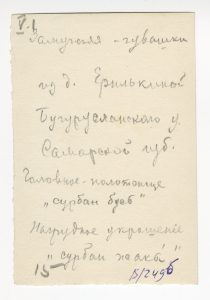 V-1
Замужняя - чувашки
из д. Ерилкиной
Бугурусланского у.
Самарской губ.
Головное полотенце
"сурбан
Нагрудное украшение
"сурбан
15
Б/249б